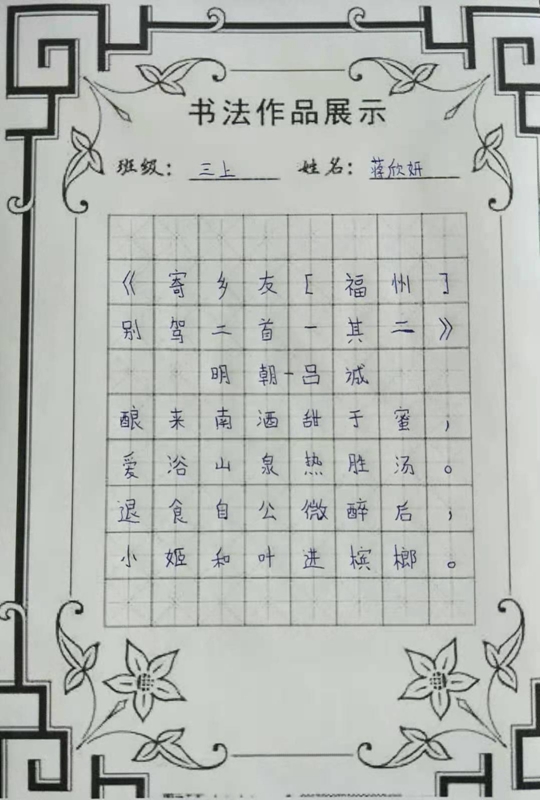 书法作品展示
班级：三上 姓名：蒋欣妍
《寄乡友［福州］
别驾二首一其二》
明朝-吕诚
酿来南酒甜于蜜；
爱浴山泉热胜汤。
退食自公微醉后；
小姬和叶进槟榔。